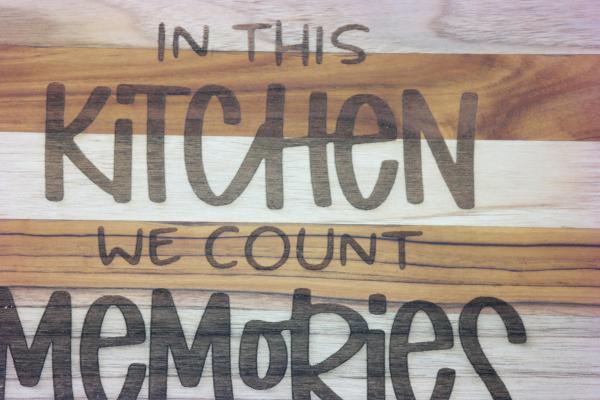 IN THIS
KiTCHeN
WE COUNT
MeMoRies